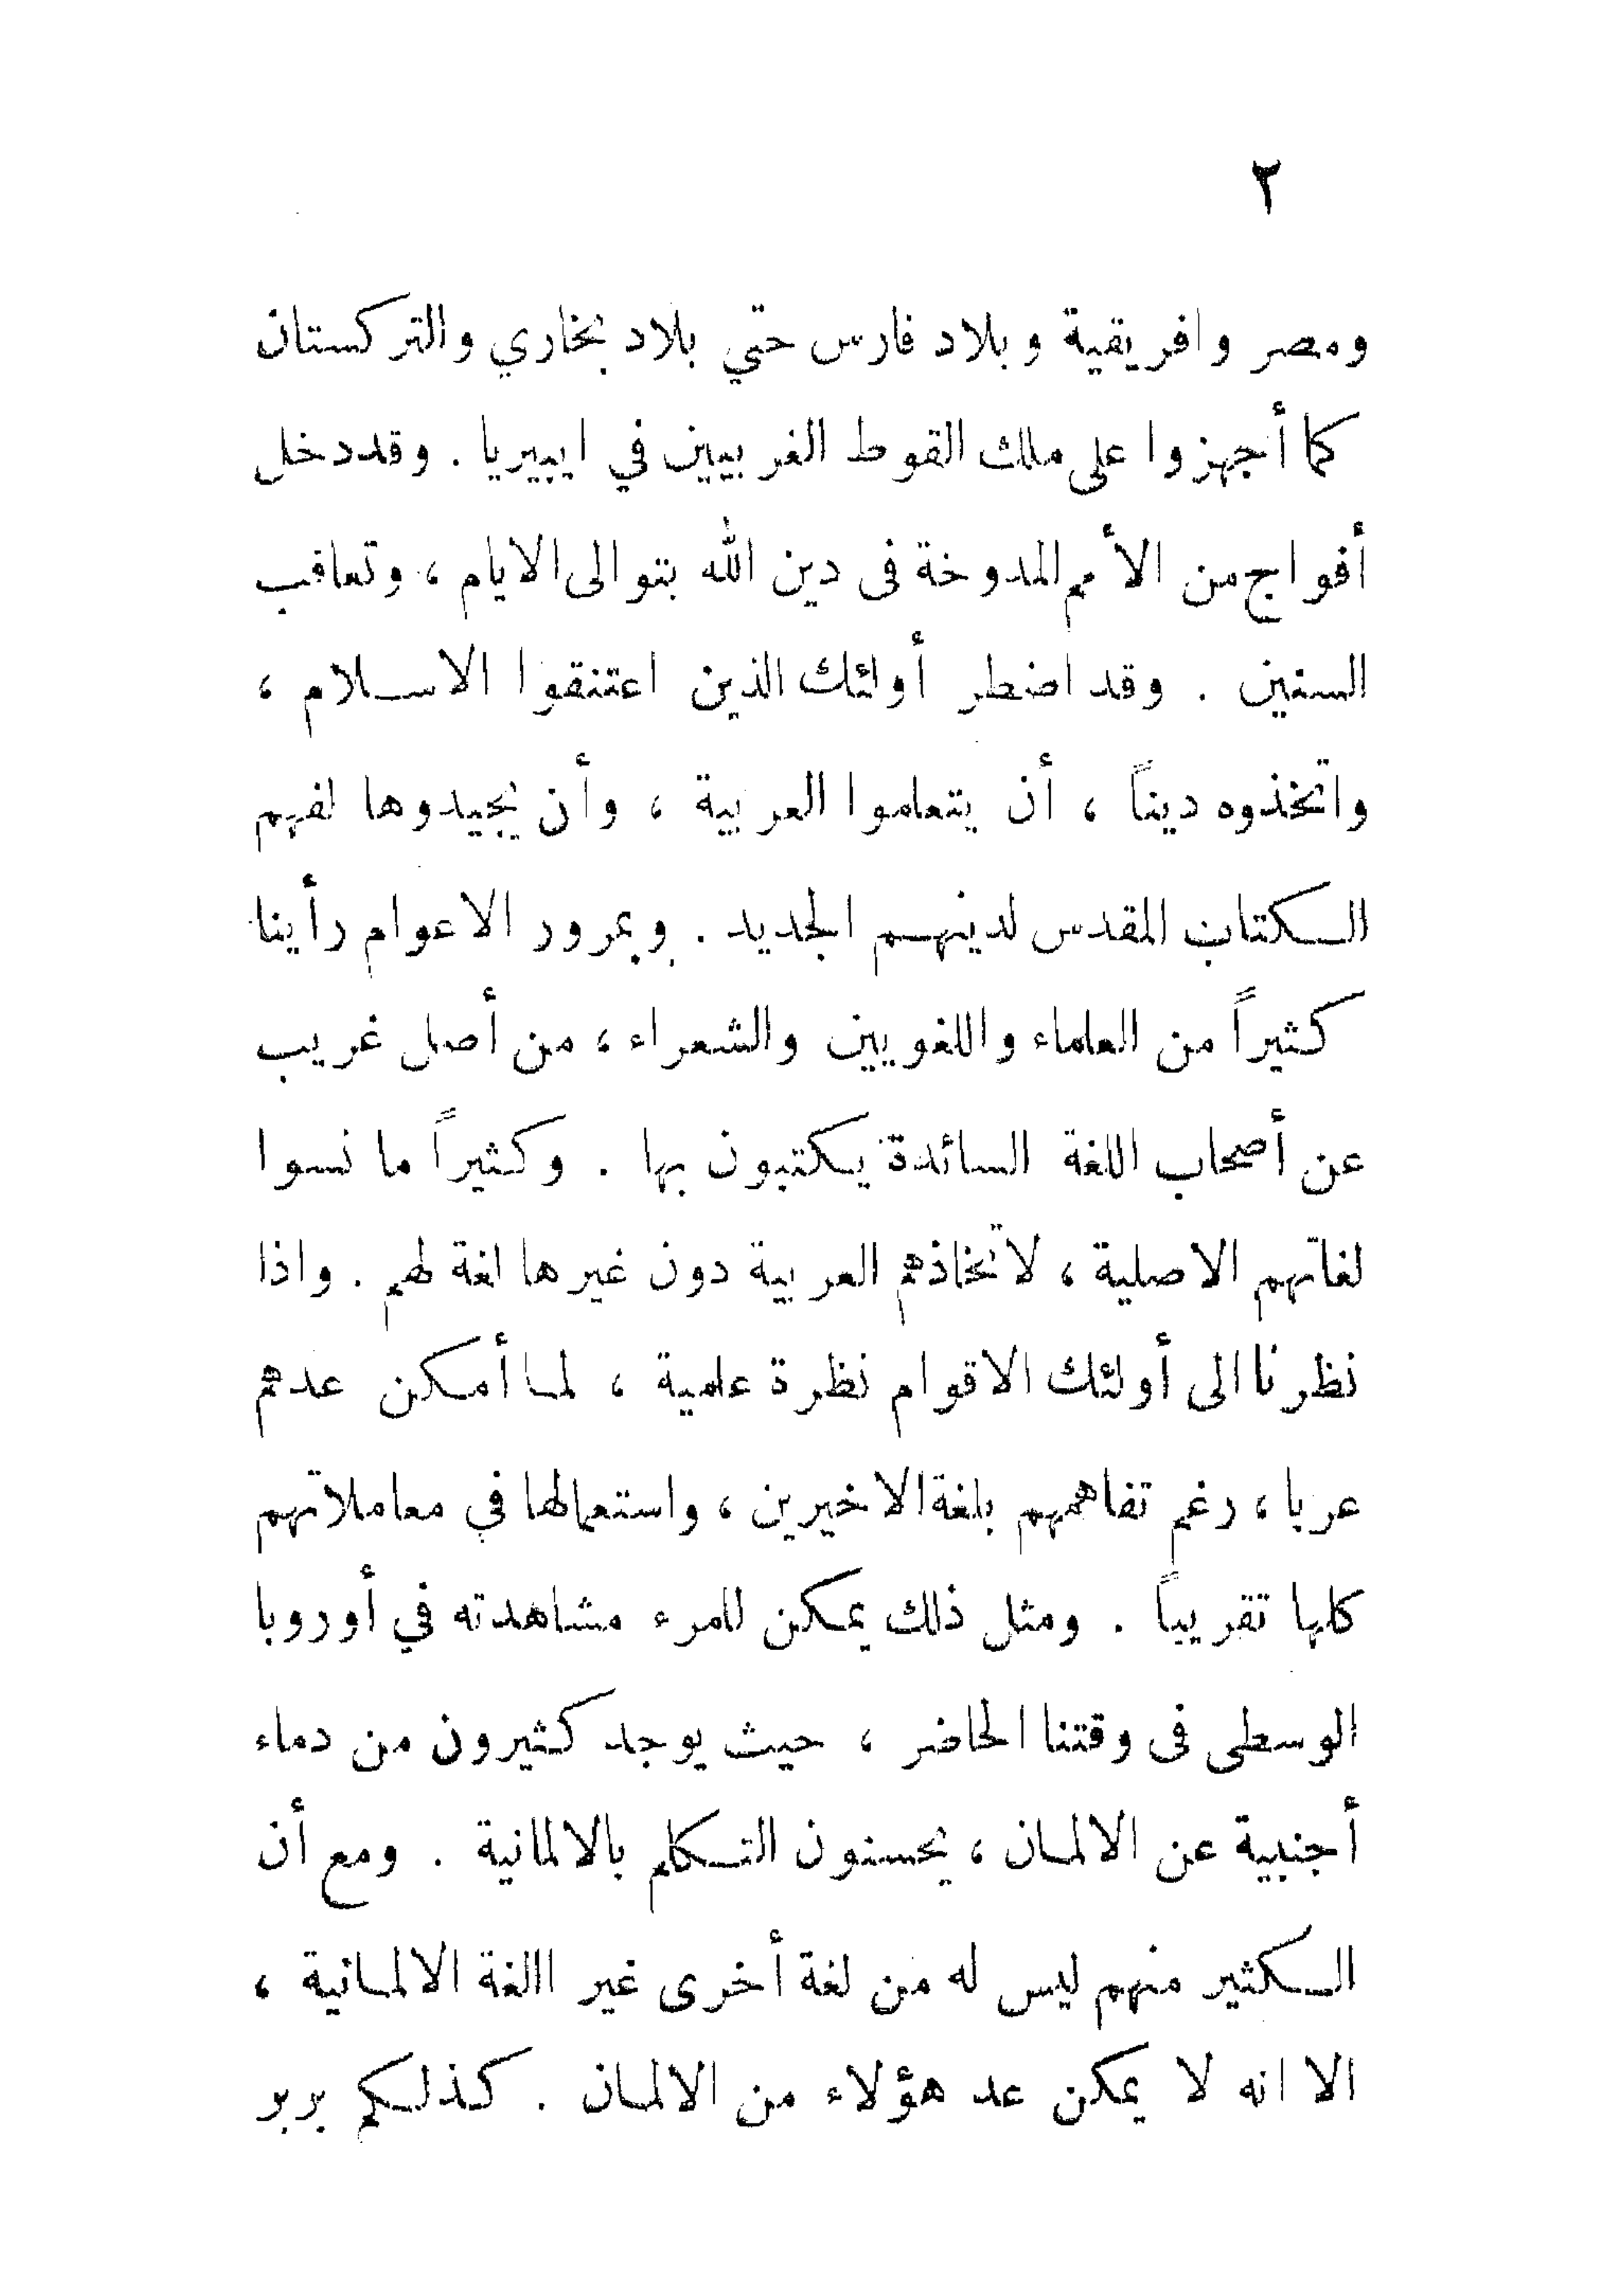 ٢
ومصر وافريقية وبلاد فارس حتي بلاد بخاري والتركستان
كما أجهزوا على ملك القوط الغربيين في ايبيريا . وقد دخل
أفواج من الأمم المدوخة فى دين الله بتوالى الايام ، وتعاقب
السنين . وقد اضطر أولئك الذين اعتنقوا الاسلام ،
واتخذوه ديناً ، أن يتعلموا العربية ، وأن يجيدوها لفهم
الكتاب المقدس لدينهم الجديد . وبمرور الاعوام رأينا
كثيراً من العلماء واللغويين والشعراء ، من أصل غريب
عن أصحاب اللغة السائدة يكتبون بها . وكثيراً ما نسوا
لغاتهم الاصلية ، لاتخاذهم العربية دون غيرها لغة لهم . واذا
نظرنا الى أولئك الاقوام نظرة علمية ، لما أمكن عدهم
عربا ، رغم تفاهمهم بلغة الاخيرين ، واستعمالها في معاملاتهم
كلها تقريباً . ومثل ذلك يمكن للمرء مشاهدته في أوروبا
الوسطى فى وقتنا الحاضر ، حيث يوجد كثيرون من دماء
أجنبية عن الالمان ، يحسنون التكلم بالالمانية . ومع أن
الكثير منهم ليس له من لغة أخرى غير اللغة الالمانية ،
الا انه لا يمكن عد هؤلاء من الالمان . كذلكم بربر